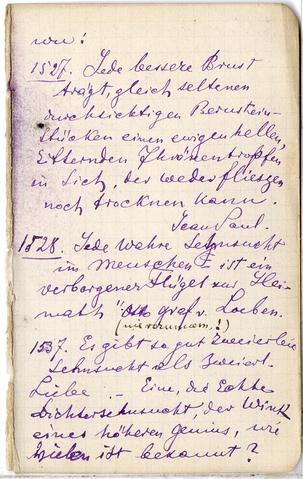 uns!
1527. Jede bessere Brust
trägt, gleich seltenen
durchsichtigen Bernstein-
stücken einen ewigen hellen,
zitternden Thränentropfen
in sich, der weder fließen
noch trocknen kann.
Jean Paul.
1528. Jede wahre Sehnsucht
im Menschen ist ein
verborgener Flügel zur Hei-
math Otto graf v. Loeben.
1537. Es gibt so gut zweierlei
Sehnsucht als zweierl.
Liebe. – Eine, die echte
Dichtersehnsucht, der Wink
eines höheren genius, wie
Vielen ist bekannt?